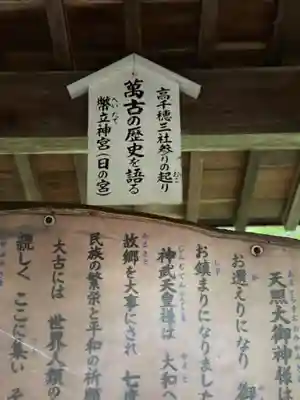 高千穂三社祭りの起り
萬古の歴史を語る
幣立神宮(日の宮)
へいたて
みこ
天照大御神様は
お還えりになり 御
お鎮まりになりました
神武天皇様は 大和へ
故郷を大事にされ 七度
民族の繁栄と平和の祈願
太古には 世界人類の
親しく ここに集い そ